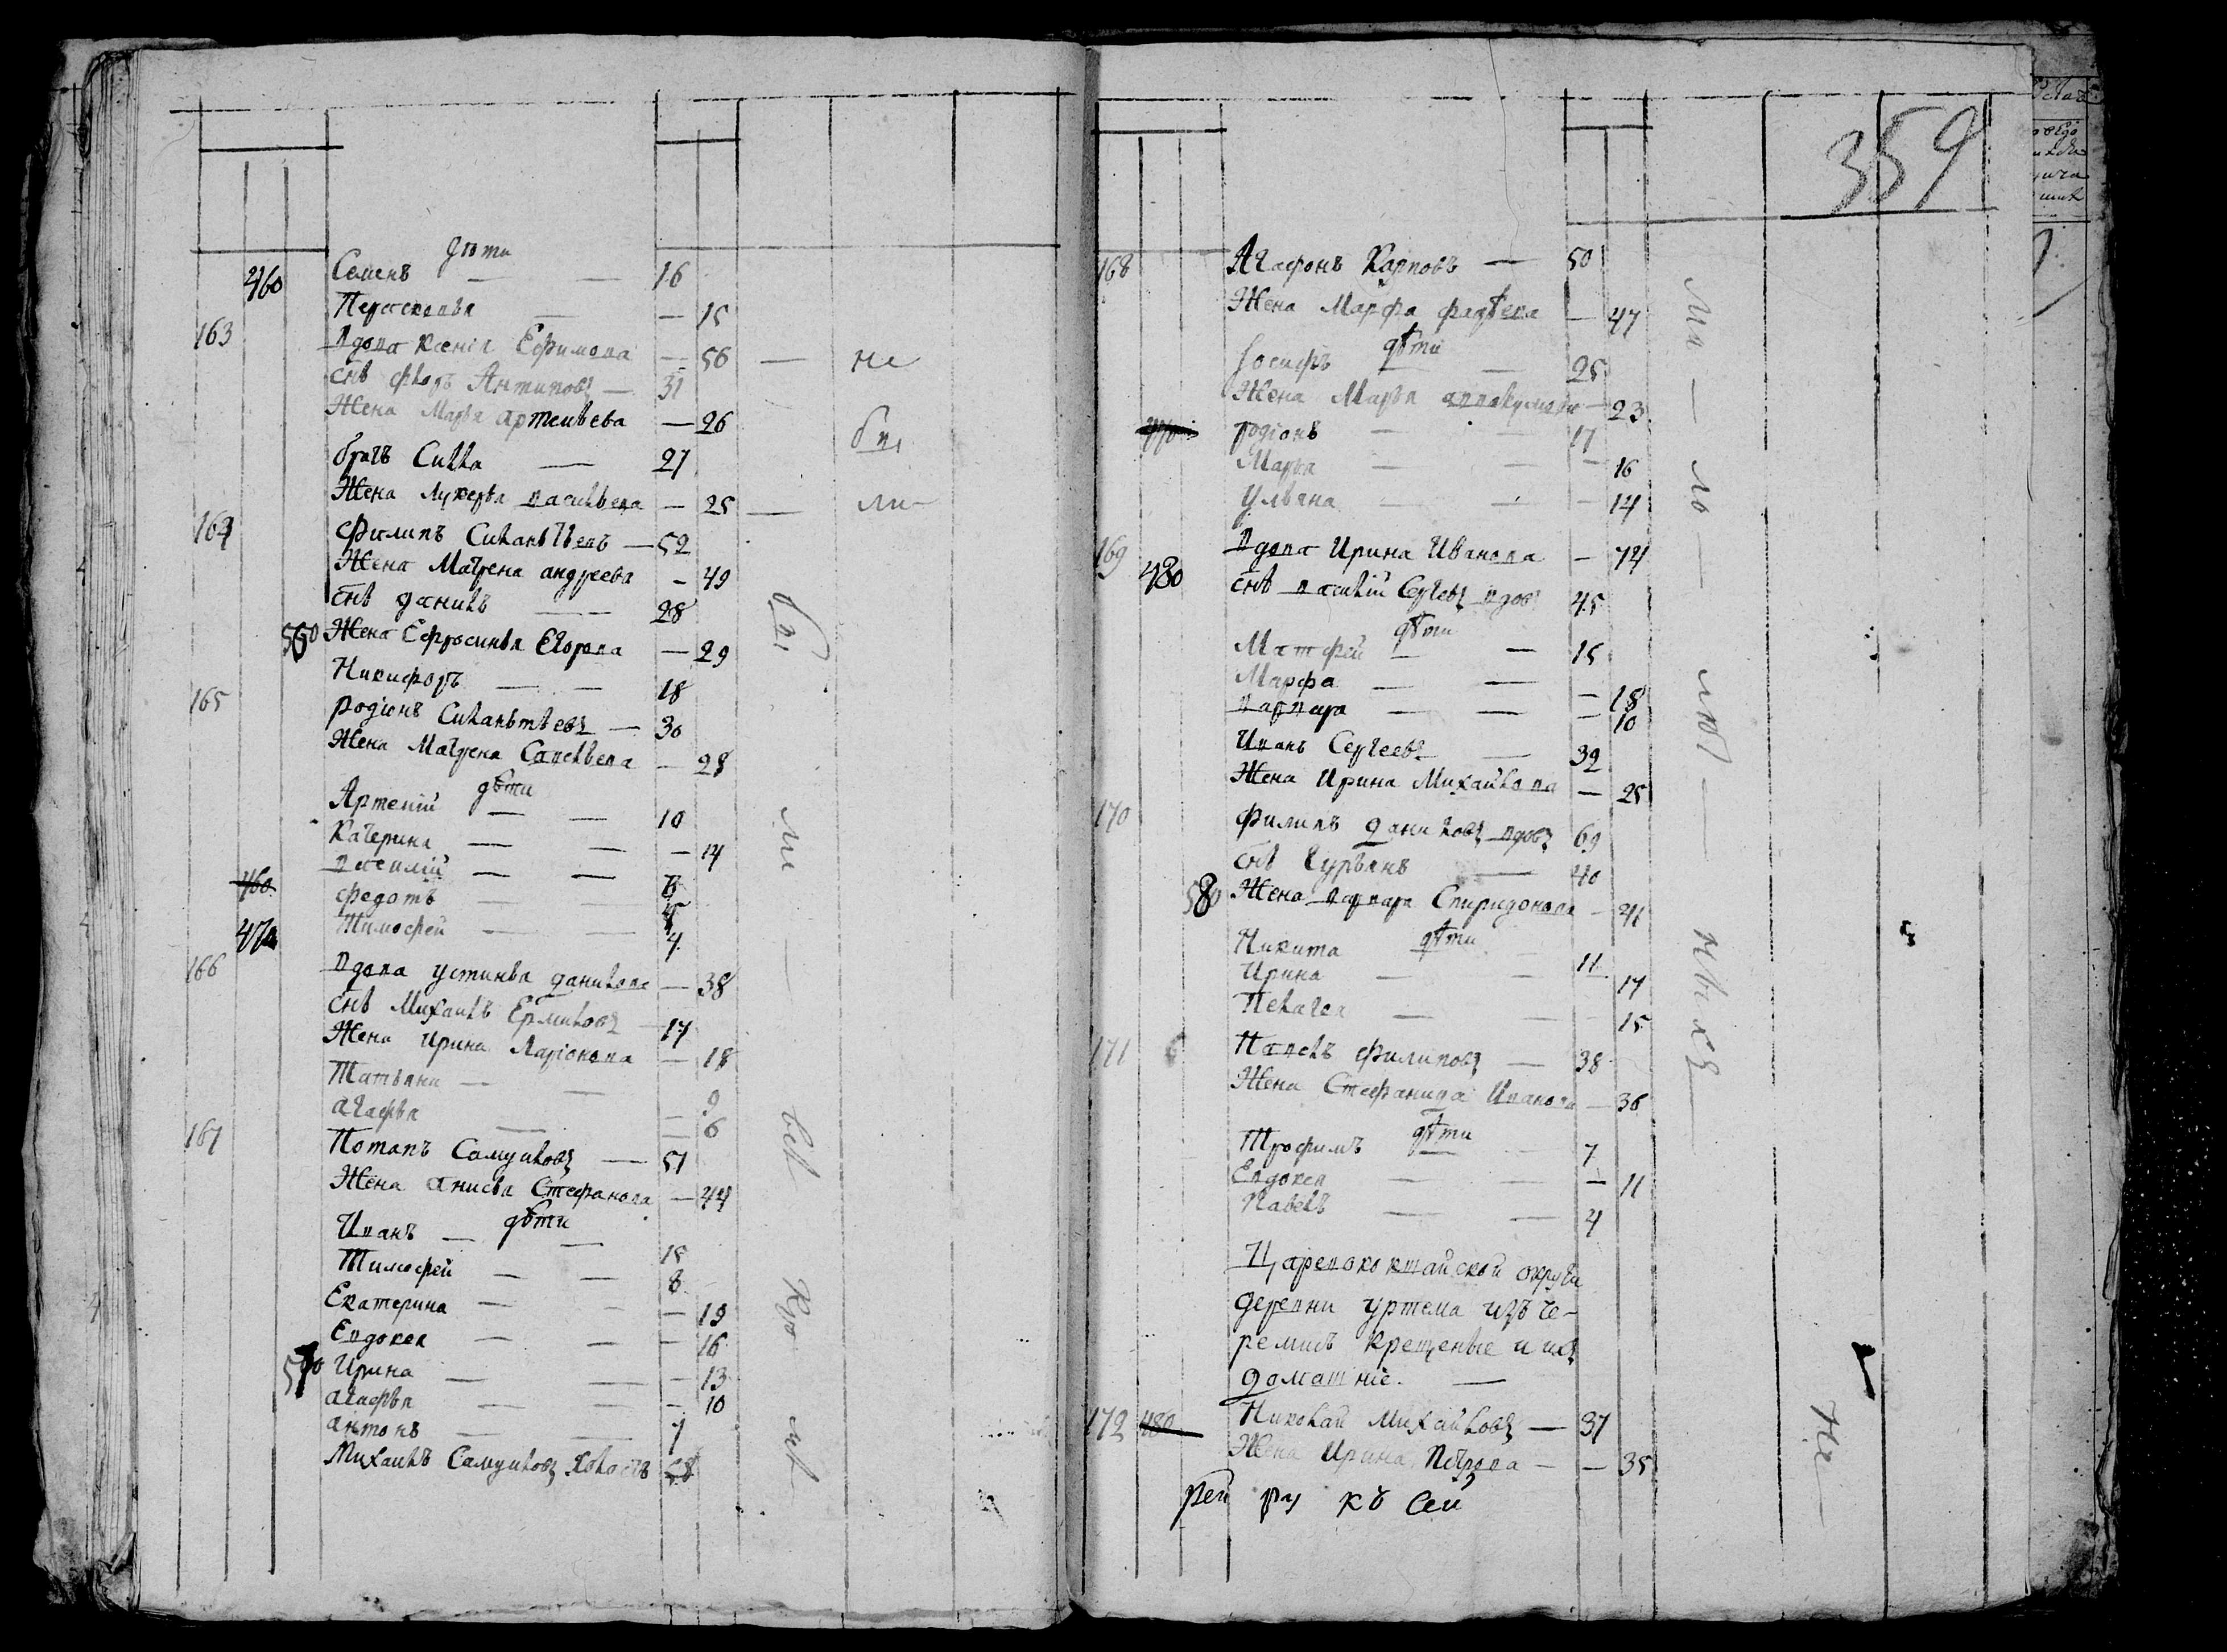 дѣти
460 Семенъ — — 16
Парасковья — — 15
163 Вдова Ксенiя Ефимова — 56 — не
снъ Ѳедоръ Антиповъ — 31
Жена Марья Артемьева — 26
братъ Сила — 27
Жена Лукерья Васильева — 25 —
164 Филипъ Силантьевъ — 52
Жена Матрена Андреева — 49
снъ Данилъ — — 28
560 Жена Ефросинья Егорова — 29
Никифоръ — — 18
165 Родiонъ Силантьевъ — 30
Жена Матрена Савельева — 28
дѣти
Артемiй — — 10
Катерина — — — 14
Василiй — —
460 Федотъ — —
Тимофей — — 4
166 Вдова Устинья Данилова — 38
снъ Михаилъ Ермиловъ 17
Жена Ирина Ларiонова — 18
Татьяна — — 9
Агафья — — 6
167 Потапъ Самуиловъ — 51
Жена Анисья Стефанова — 44
дѣти
Иванъ — — 15
Тимофей — — 8
Екатерина — — — 19
Евдокея — — — 16
570 Ирина — — — 13
Агафья — — — 10
Антонъ — — 7
Михаилъ Самуиловъ холостъ
359
168 Агафонъ Карповъ — 50
Жена Марфа Фадѣева — 47
дѣти
Иосифъ — 25
Жена Марья Аввакумова — 23
Родiонъ — — 17
Марья — — — 16
Ульяна — — — 14
169 Вдова Ирина Иванова — 74
480 снъ Василiй Сергеевъ вдовъ 45
дѣти
Матфей — — 15
Марфа — — — 18
Варвара — — — 10
Иванъ Сергеевъ — 39
Жена Ирина Михайлова — 25
170 Филипъ Даниловъ вдовъ 69
снъ Гурьянъ — 40
580 Жена Варвара Спиридонова — 41
дѣти
Никита — 11
Ирина — — 17
Пелагея — — — 15
171 Павелъ Филиповъ — 38
Жена Стефанида Иванова — 36
дѣти
Трофимъ — 7
Евдокея — — — 11
Павелъ — — 4
Царевококшайской округи
деревни Уртема изъ че-
ремисъ крещеные и ихъ
домашнiе. —
172 480 Николай Михайловъ — 37
Жена Ирина Петрова — — 35
ру къ сей